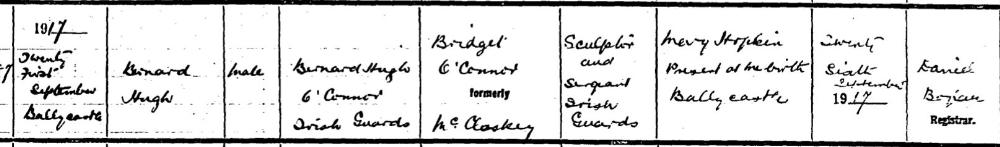 1917
Twenty
First
September
Ballycastle
Bernard
Hugh
Male
Bernard Hugh
O'Connor
Irish Guards
Bridget
O'Connor
formerly
McCloskey
Sculptor
and
Sergeant
Irish
Guards
Mary Hopkin
Present at the birth
Ballycastle
Twenty
Sixth
September
1917
Daniel
Registrar.